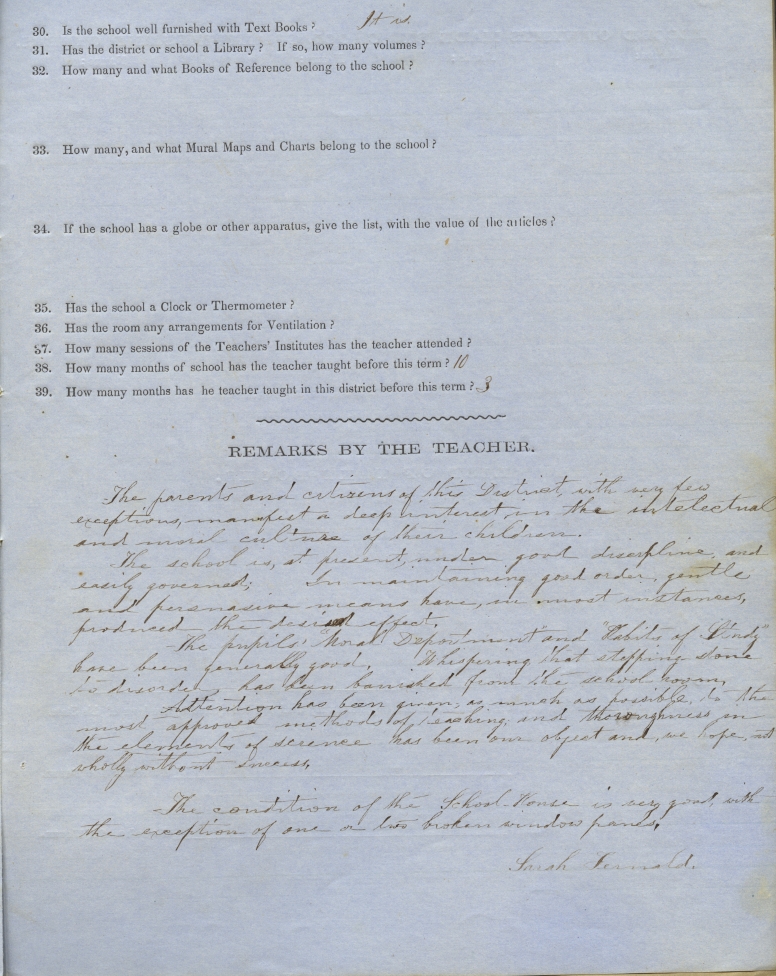 30. Is the school well furnished with Text Books? It is.
31. Has the district or school a Library? If so, how many volumes?
32. How many and what Books of Reference belong to the school?
33. How many, and what Mural Maps and Charts belong to the school?
34. If the school has a globe or other apparatus, give the list, with the value of the articles?
35. Has the school a Clock or Thermometer?
36. Has the room any arrangements for Ventilation?
37. How many sessions of the Teachers' Institutes has the teacher attended?
38. How many months of school has the teacher taught before this term? 10
39. How many months has he teacher taught in this district before this term? 3
REMARKS BY THE TEACHER.
The parents and citizens of this District, with very few
exceptions, manifest a deep interest in the intelectual
and moral culture of their children.
The school is, at present, under good discipline, and
easily governed; In maintaining good order, gentle
and persuasive means have, in most instances,
produced the desired effect.
The pupils' "Moral Deportment" and "Habits of Study"
have been generally good. Whispering that stepping stone
to disorder, has been banished from the school room.
Attention has been given, as much as possible, to the
most approved methods of teaching, and thoroughness in
the elements of science has been our object and, we hope, not
wholly without success.
The condition of the School-House is very good, with
the exception of one or two broken window panes.
Sarah Fernald.